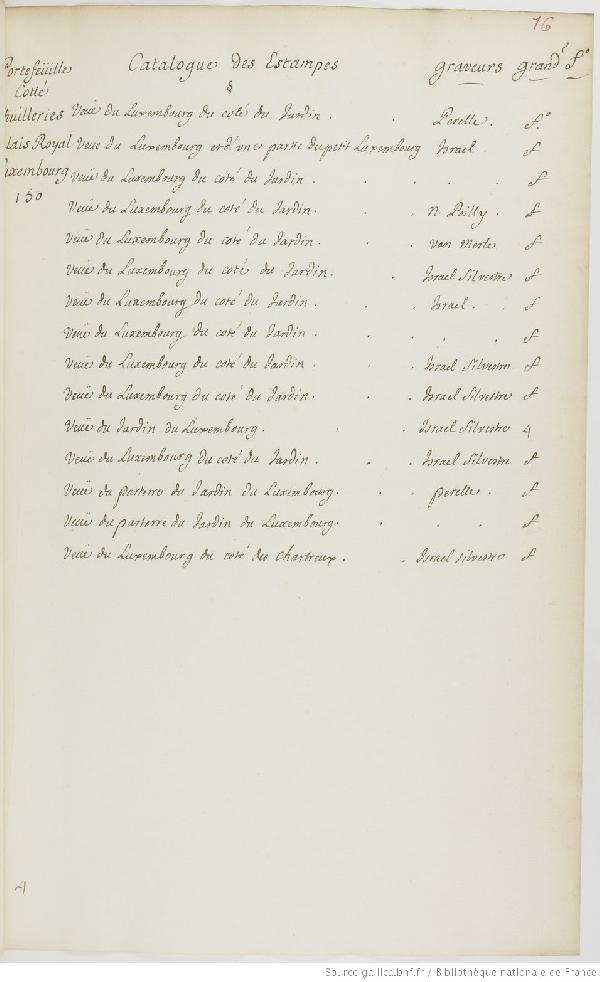 76
Portefëuille Catalogue des Estampes graveurs grandr fo
Cotté §
thuilleries Veuë du Luxembourg du coté du Jardin . . Perelle . fo.
lais Royal Veuë du Luxembourg et d'vne partie du petit Luxembourg Israel . f
uxembourg Veuë du Luxembourg du coté du Jardin . . . . f
130
Veuë du Luxembourg du coté du Jardin . . . n Poilly . f
Veuë du Luxembourg du coté du Jardin . . . van Merle f
Veuë du Luxembourg du coté du Jardin . . Israel Silvestre f
Veuë du Luxembourg du coté du Jardin . . . Israel . f
Veuë du Luxembourg du coté du Jardin . . . . . f
Veuë du Luxembourg du coté du Jardin . . . Israel Silvestre f
Veuë du Luxembourg du coté du Jardin . . . Israel Silvestre f
Veuë du Jardin du Luxembourg . . . Israel Silvestre 4
Veuë du Luxembourg du coté du Jardin . . . Israel Silvestre f
Veuë du parterre du Jardin du Luxembourg . . . perelle . f
Veuë du parterre du Jardin du Luxembourg . . . . f
Veuë du Luxembourg du coté des Chartreux . . Israel silvestre f
4
Source gallica.bnf.fr / Bibliothèque nationale de France